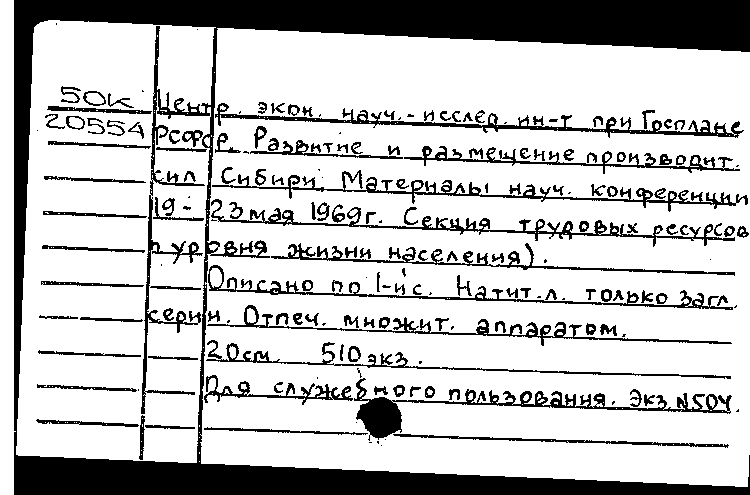 50К Центр. экон. науч.-исслед. ин-т при Госплане
20554 РСФСР. Развитие и размещение производит.
сил Сибири. Материалы науч. конференции
19-23 мая 1969г. Секция трудовых ресурсов
и уровня жизни населения).
Описано по 1-й с. На тит. л. только загл.
серии. Отпеч. множит. аппаратом.
20см. 510 экз.
Для служебного пользования. Экз. №504.